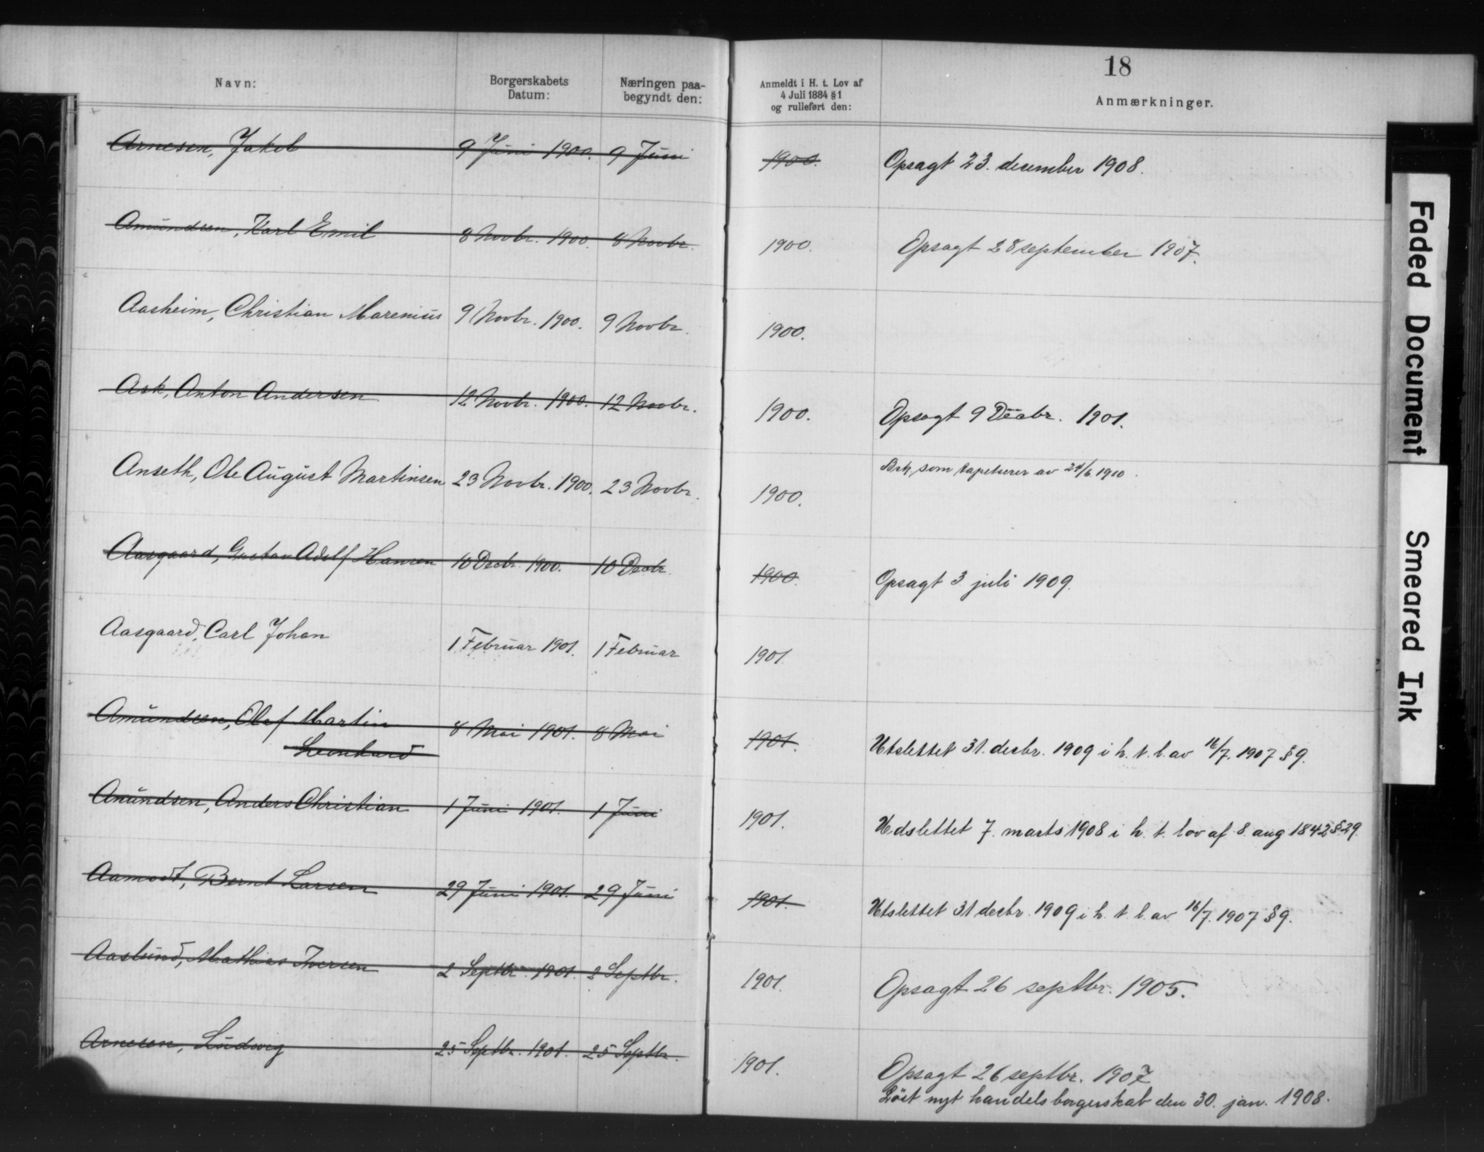 18
Navn:
Borgerskabets
Datum:
Næringen paa-
begyndt den:
Anmeldt i H. t. Lov af
4 Juli 1884 § 1
og rulleført den:
Anmærkninger.
Arnesen, Jakob 9 Juni 1900. 9 Juni 1900. Opsagt 23. december 1908.
Amundsen, Karl Emil 8 Novbr. 1900. 8 Novbr. 1900. Opsagt 28 september 1907.
Aasheim, Christian Marenius 9 Novbr. 1900. 9 Novbr. 1900.
Ask, Anton Andersen 12 Novbr. 1900. 12 Novbr. 1900. Opsagt 9 Decbr. 1901.
Ask, som tapetserer av 24/6 1910.
Anseth, Ole August Martinsen 23 Novbr. 1900. 23 Novbr. 1900.
Aasgaard, Gustav Adolf Hansen 10 Decbr 1900. 10 Decbr 1900. Opsagt 3 juli 1909.
Aasgaard, Carl Johan 1 Februar 1901. 1 Februar 1901.
Amundsen, Olaf Martin 8 Mai 1901. 8 Mai 1901. Utslettet 31. decbr. 1909 i h. t. l. av 16/7. 1907 § 9.
Leonhard
Anundsen, Anders Christian 1 Juni 1901. 1 Juni 1901. Udslettet 7. marts 1908 i h. t. lov af 8 aug 1842 § 29.
Aamodt, Bernt Larsen 29 Juni 1901. 29 Juni 1901. Utslettet 31 decbr. 1909 i h. t. l. av 16/7. 1907 § 9.
Aaslund, Mathias Iversen 2 Septbr. 1901. 2 Septbr. 1901. Opsagt 26 septbr. 1905.
Arnesen, Ludvig 25 Septbr. 1901. 25 Septbr. 1901. Opsagt 26 septbr. 1907
Löst nyt handelsborgerskab den 30. jan. 1908.
Faded Document
Smeared Ink